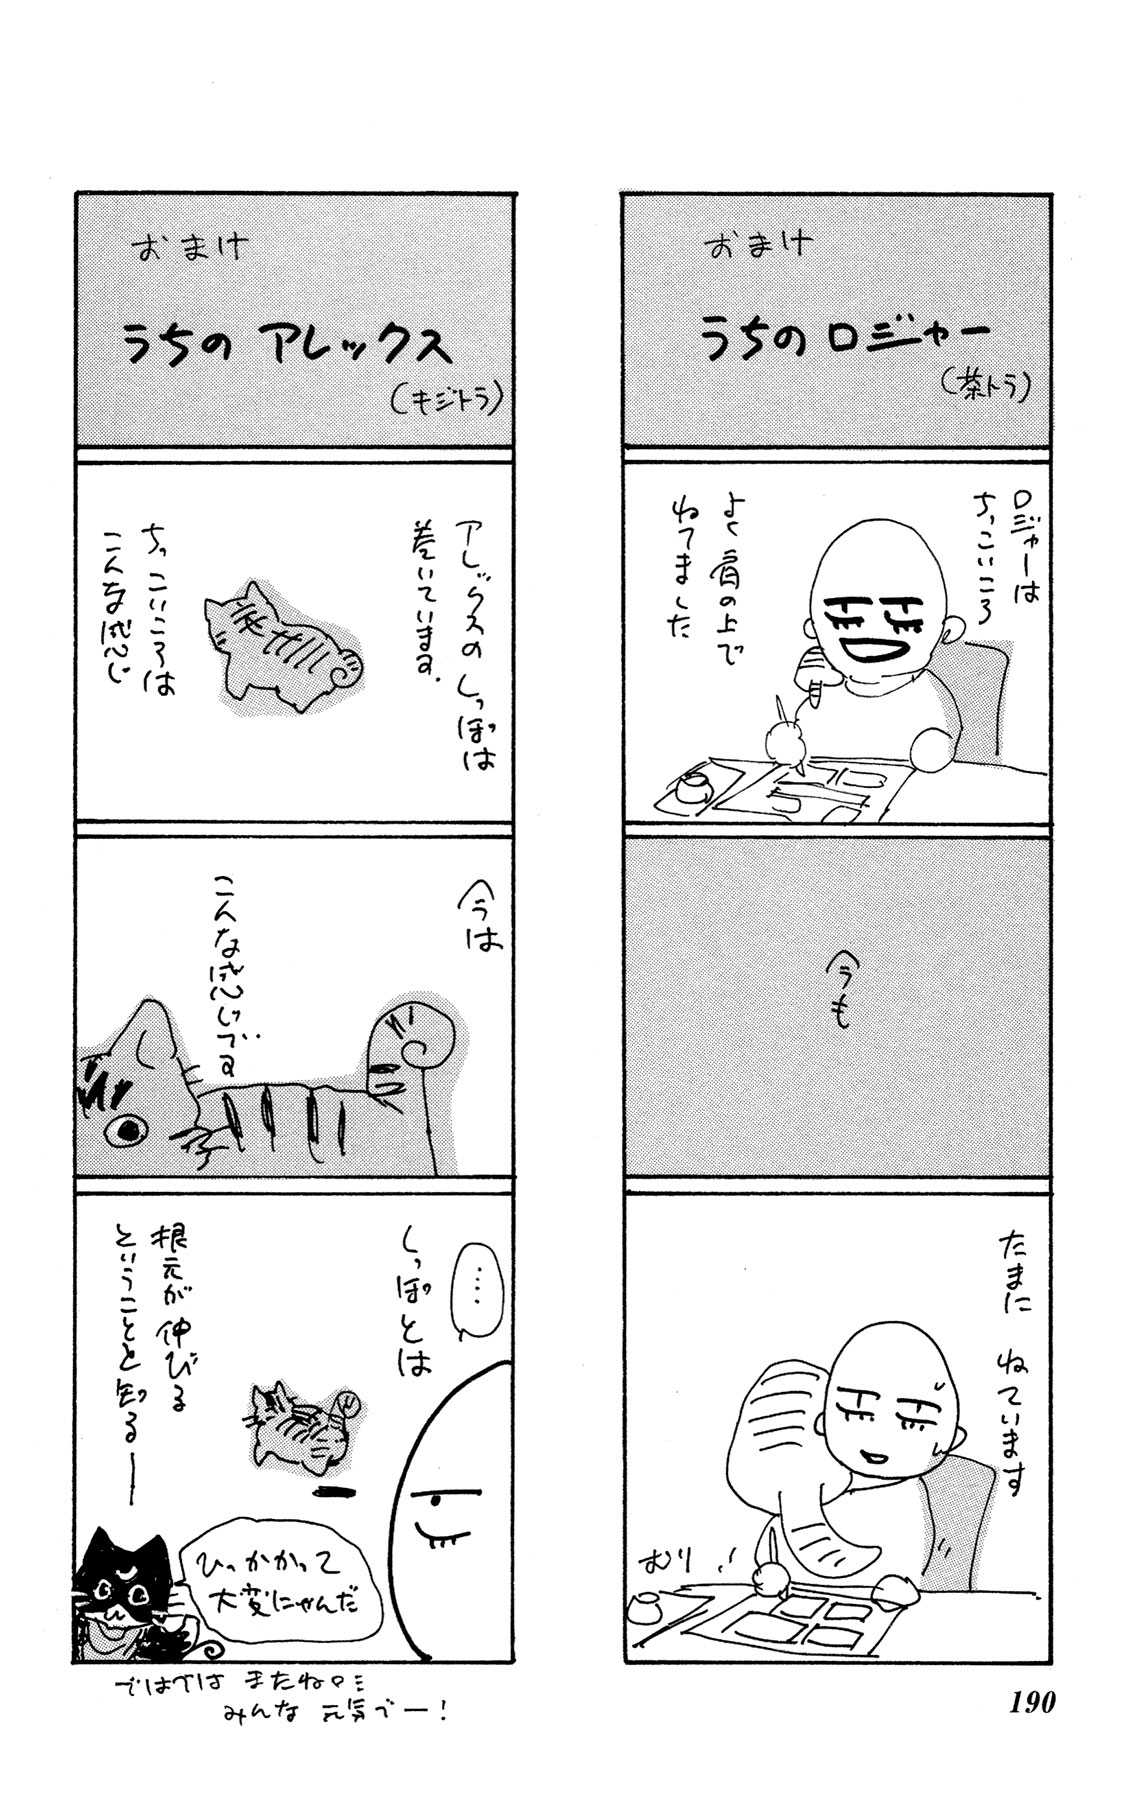 おまけ
うちのロジャー
(茶トラ)
ロジャーは
ちっこいころ
よく肩の上で
ねてました
今も
たまに ねています
むり…!
おまけ
うちの アレックス
(キジトラ)
アレックスの しっぽは
巻いています。
ちっこいころは
こんな感じ
今は
こんな感じです
……
しっぽとは
根元が伸びる
ということを知るー
ひっかかって
大変にゃんだ
ではでは またね
みんな 元気でー!
190